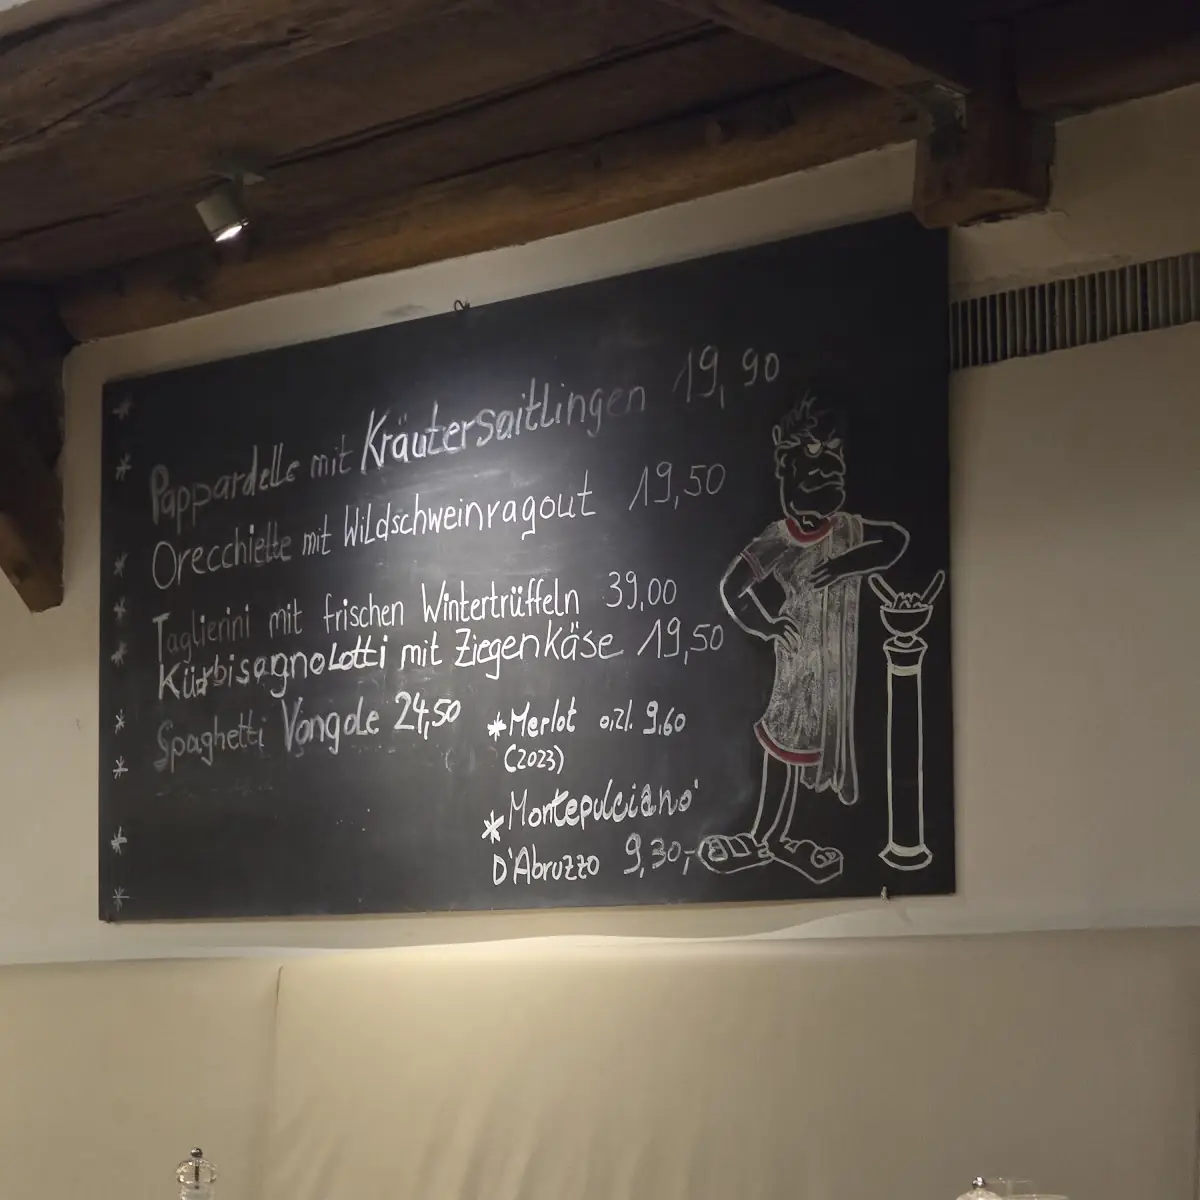 Pappardelle mit Kräutersaitlingen 19,90
Orecchiette mit Wildschweinragout 19,50
Taglierini mit frischen Wintertrüffeln 39,00
Kürbisagnolotti mit Ziegenkäse 19,50
Spaghetti Vongole 24,50
* Merlot 0,2l. 9,60
(2023)
* Montepulciano
D'Abruzzo 9,30,-